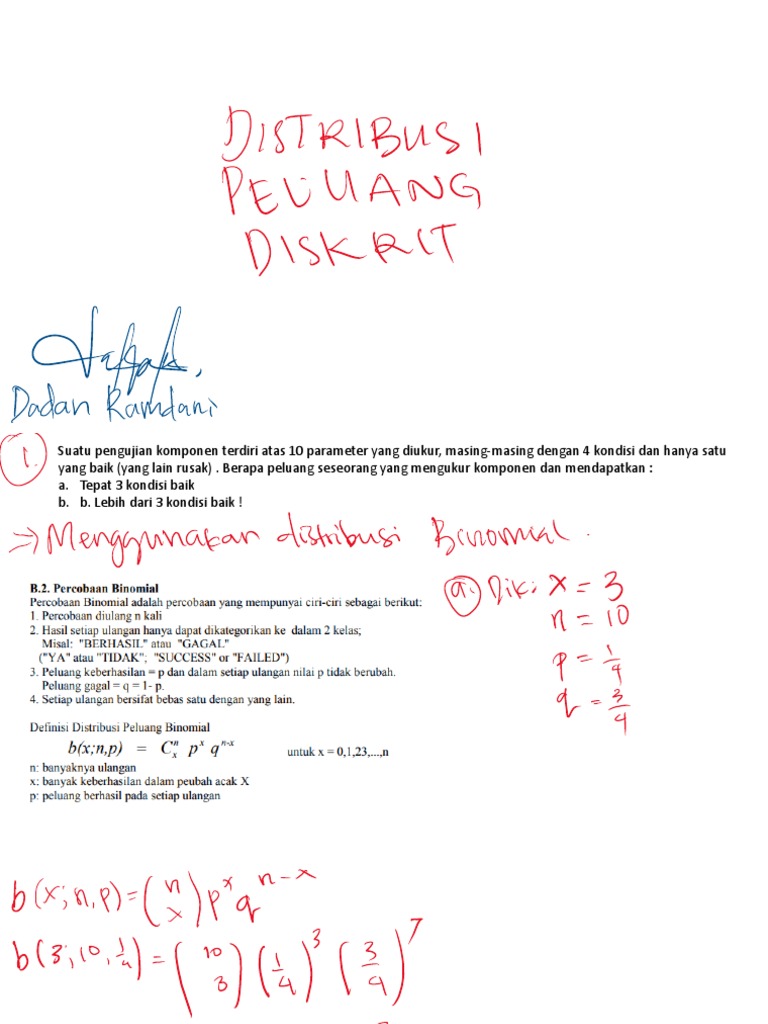 DISTRIBUSI
PELUANG
DISKRIT
Dadan Ramdani
1.
Suatu pengujian komponen terdiri atas 10 parameter yang diukur, masing-masing dengan 4 kondisi dan hanya satu
yang baik (yang lain rusak) . Berapa peluang seseorang yang mengukur komponen dan mendapatkan :
a. Tepat 3 kondisi baik
b. b. Lebih dari 3 kondisi baik !
=> Menggunakan distribusi Binomial.
B.2. Percobaan Binomial
Percobaan Binomial adalah percobaan yang mempunyai ciri-ciri sebagai berikut:
1. Percobaan diulang n kali
2. Hasil setiap ulangan hanya dapat dikategorikan ke dalam 2 kelas;
Misal: "BERHASIL" atau "GAGAL"
("YA" atau "TIDAK"; "SUCCESS" or "FAILED")
3. Peluang keberhasilan = p dan dalam setiap ulangan nilai p tidak berubah.
Peluang gagal = q = 1- p.
4. Setiap ulangan bersifat bebas satu dengan yang lain.
Definisi Distribusi Peluang Binomial
b(x;n,p) = C^n_x p^x q^{n-x} untuk x = 0,1,23,...,n
n: banyaknya ulangan
x: banyak keberhasilan dalam peubah acak X
p: peluang berhasil pada setiap ulangan
a. Dik: x = 3
n = 10
p = 1/4
q = 3/4
b(x;n,p) = (n x) p^x q^{n-x}
b(3;10,1/4) = (10 3) (1/4)^3 (3/4)^7